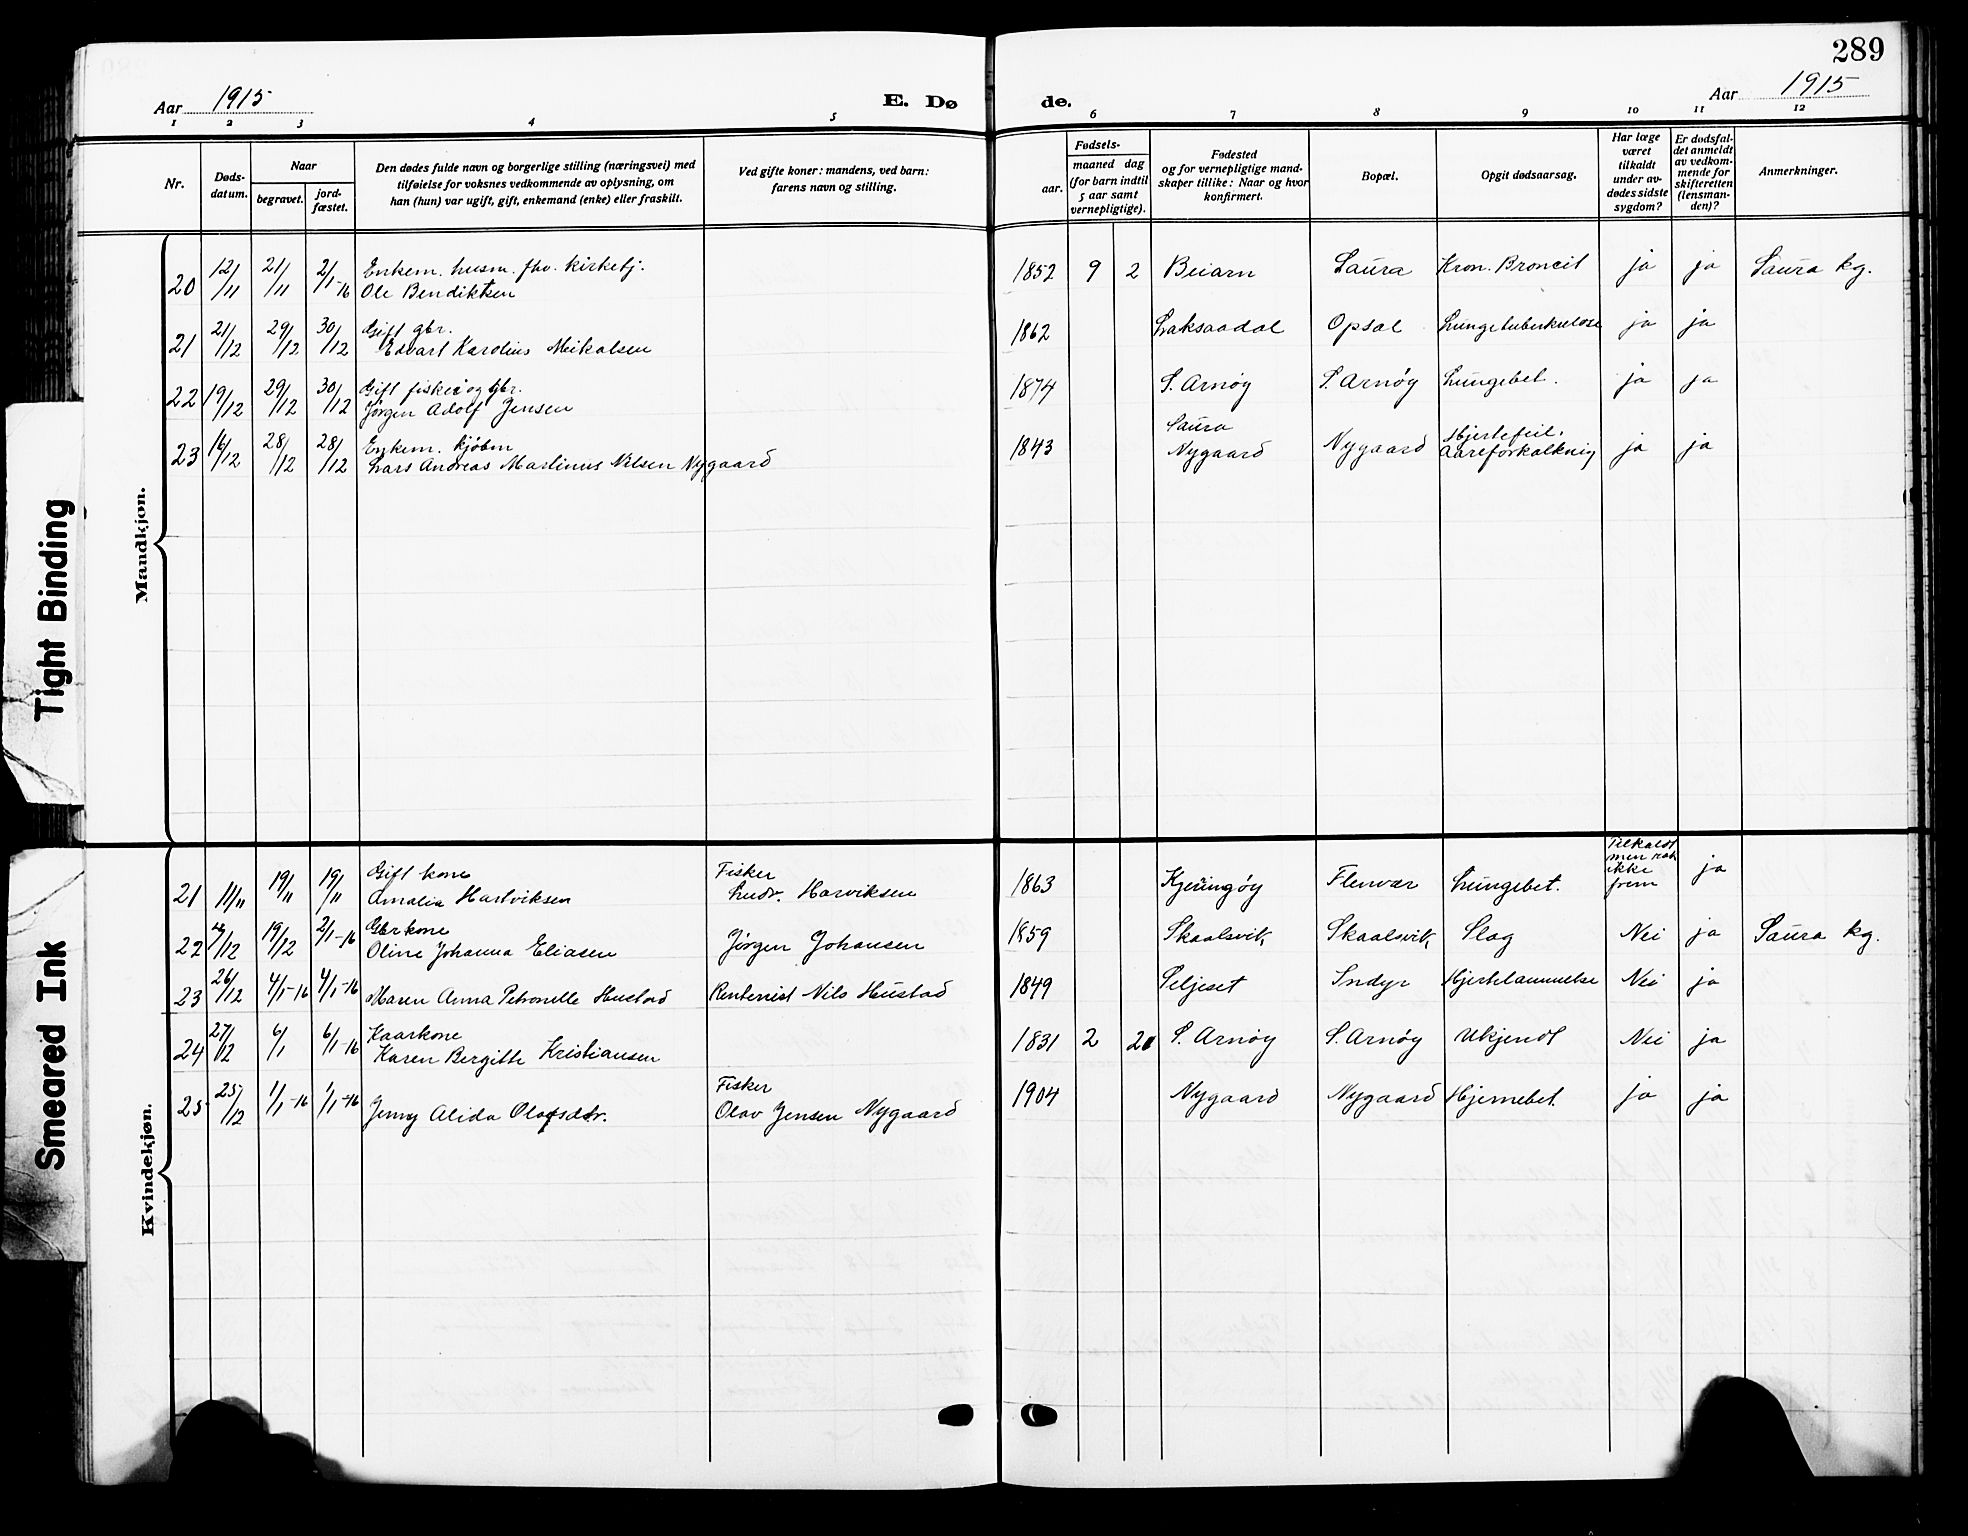 289
Aar 1915
E. Dø
de.
Aar 1915
1 2 3 4 5 6 7 8 9 10 11 12
Nr.
Døds-
datum.
Naar
begravet.
jord-
fæstet.
Den dødes fulde navn og borgerlige stilling (næringsvei) med
tilføielse for voksnes vedkommende av oplysning, om
han (hun) var ugift, gift, enkemand (enke) eller fraskilt.
Ved gifte koner: mandens, ved barn:
farens navn og stilling.
Fødsels-
aar.
maaned dag
(for barn indtil
5 aar samt
vernepligtige).
Fødested
og for vernepligtige mand-
skaper tillike: Naar og hvor
konfirmert.
Bopæl.
Opgit dødsaarsag.
Har læge
været
tilkaldt
under av-
dødes sidste
sygdom?
Er dødsfal-
det anmeldt
av vedkom-
mende for
skifteretten
(lensman-
den)?
Anmerkninger.
Mandkjøn.
20 12/11 21/11 2/1-16 Enkem. husm. fhv. kirketj.
Ole Bendiktsen
1852 9 2 Beiarn Saura Kron. Broncit ja ja Saura kg.
21 21/12 29/12 30/12 Gift gbr.
Edvart Karolius Mikalsen
1862 Laksaadal Opsal Lungetuberkulose ja ja
22 19/12 29/12 30/12 Gift fisker og gbr.
Jørgen Adolf Jensen
1874 S. Arnøy S. Arnøy Lungebet. ja ja
23 16/12 28/12 28/12 Enkem. kjøbm
Lars Andreas Martinus Nilsen Nygaard
1843 Saura
Nygaard Nygaard Hjertefeil.
Aareforkalkning ja ja
Kvindekjøn.
21 11/11 19/11 19/11 Gift kone
Amalia Hartviksen
Fisker
Ludv. Harviksen
1863 Kjeringøy Flenvær Lungebet. Tilkaldt
men rak
ikke
frem ja
22 /12 19/12 2/1-16 Gbrkone
Oline Johanna Eliasen
Jørgen Johansen
1859 Skaalsvik Skaalsvik Slag Nei ja Saura kg.
23 26/12 4/1-16 4/1-16 Maren Anna Petronelle Hustad
Rentenist Nils Hustad
1849 Seljeset Indyr Hjertelammelse Nei ja
24 27/12 6/1 6/1-16 Kaarkone
Karen Bergitte Kristiansen
1831 2 S. Arnøy S. Arnøy Ukjendt Nei ja
25 25/12 1/1-16 1/1-16 Jenny Alida Olafsdtr.
Fisker
Olav Jensen Nygaard
1904 Nygaard Nygaard Hjernebet. ja ja
Tight Binding
Smeared Ink